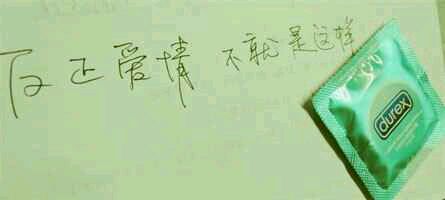 反正爱情不就是这样
durex